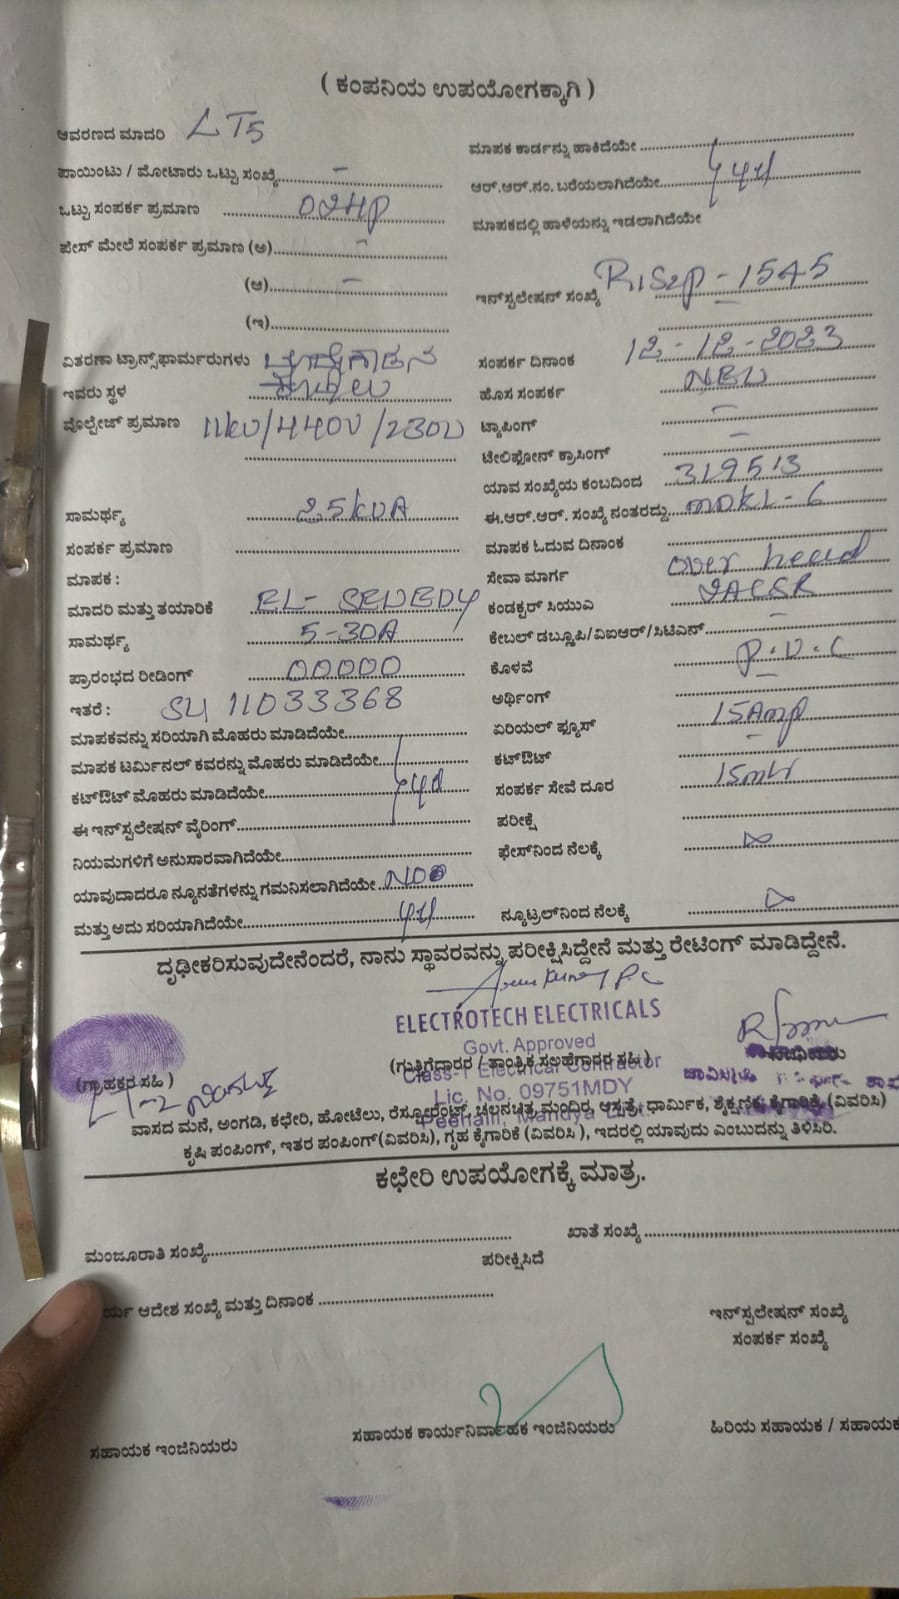 ( ಕಂಪನಿಯ ಉಪಯೋಗಕ್ಕಾಗಿ )
ಆವರಣದ ಮಾದರಿ LT5
ಪಾಯಿಂಟು / ಮೋಟಾರು ಒಟ್ಟು ಸಂಖ್ಯೆ -
ಒಟ್ಟು ಸಂಪರ್ಕ ಪ್ರಮಾಣ
ಫೇಸ್ ಮೇಲೆ ಸಂಪರ್ಕ ಪ್ರಮಾಣ (ಅ) -
(ಆ) -
(ಇ)
ವಿತರಣಾ ಟ್ರಾನ್ಸ್‌ಫಾರ್ಮರುಗಳು
ಇವರು ಸ್ಥಳ
ವೊಲ್ಟೇಜ್ ಪ್ರಮಾಣ 11kV/440V/230V
ಸಾಮರ್ಥ್ಯ 25kVA
ಸಂಪರ್ಕ ಪ್ರಮಾಣ
ಮಾಪಕ :
ಮಾದರಿ ಮತ್ತು ತಯಾರಿಕೆ
ಸಾಮರ್ಥ್ಯ 5-30A
ಪ್ರಾರಂಭದ ರೀಡಿಂಗ್ 00000
ಇತರೆ : 11033368
ಮಾಪಕವನ್ನು ಸರಿಯಾಗಿ ಮೊಹರು ಮಾಡಿದೆಯೇ
ಮಾಪಕ ಟರ್ಮಿನಲ್ ಕವರನ್ನು ಮೊಹರು ಮಾಡಿದೆಯೇ
ಕಟ್‌ಔಟ್ ಮೊಹರು ಮಾಡಿದೆಯೇ
ಈ ಇನ್‌ಸ್ಟಲೇಷನ್ ವೈರಿಂಗ್
ನಿಯಮಗಳಿಗೆ ಅನುಸಾರವಾಗಿದೆಯೇ
ಯಾವುದಾದರೂ ನ್ಯೂನತೆಗಳನ್ನು ಗಮನಿಸಲಾಗಿದೆಯೇ
ಮತ್ತು ಅದು ಸರಿಯಾಗಿದೆಯೇ
ಮಾಪಕ ಕಾರ್ಡನ್ನು ಹಾಕಿದೆಯೇ
ಆರ್.ಆರ್.ನಂ. ಬರೆಯಲಾಗಿದೆಯೇ
ಮಾಪಕದಲ್ಲಿ ಹಾಳೆಯನ್ನು ಇಡಲಾಗಿದೆಯೇ
ಇನ್‌ಸ್ಟಲೇಷನ್ ಸಂಖ್ಯೆ
ಸಂಪರ್ಕ ದಿನಾಂಕ 12-12-2023
ಹೊಸ ಸಂಪರ್ಕ NEW
ಟ್ಯಾಪಿಂಗ್ -
ಟೇಲಿಫೋನ್ ಕ್ರಾಸಿಂಗ್ -
ಯಾವ ಸಂಖ್ಯೆಯ ಕಂಬದಿಂದ
ಈ.ಆರ್.ಆರ್. ಸಂಖ್ಯೆ ನಂತರದ್ದು MDKL-6
ಮಾಪಕ ಓದುವ ದಿನಾಂಕ
ಸೇವಾ ಮಾರ್ಗ over head
ಕಂಡಕ್ಟರ್ ಸಿಯುಎ
ಕೇಬಲ್ ಡಬ್ಲೂಪಿ/ವಿಐಆರ್/ಸಿಟಿಎಸ್ -
ಕೊಳವೆ P.V.C
ಅರ್ಥಿಂಗ್ -
ಏರಿಯಲ್ ಫ್ಯೂಸ್ 15Amp
ಕಟ್‌ಔಟ್ -
ಸಂಪರ್ಕ ಸೇವೆ ದೂರ
ಪರೀಕ್ಷೆ
ಫೇಸ್‌ನಿಂದ ನೆಲಕ್ಕೆ
ನ್ಯೂಟ್ರಲ್‌ನಿಂದ ನೆಲಕ್ಕೆ
ದೃಢೀಕರಿಸುವುದೇನೆಂದರೆ, ನಾನು ಸ್ಥಾವರವನ್ನು ಪರೀಕ್ಷಿಸಿದ್ದೇನೆ ಮತ್ತು ರೇಟಿಂಗ್ ಮಾಡಿದ್ದೇನೆ.
ELECTROTECH ELECTRICALS
Govt. Approved
(ಗುತ್ತಿಗೆದಾರರ / ತಾಂತ್ರಿಕ ಸಲಹೆಗಾರರ ಸಹಿ)
Class-1 Electrical Contractor
Lic. No. 09751MDY
(ಗ್ರಾಹಕರ ಸಹಿ )
ವಾಸದ ಮನೆ, ಅಂಗಡಿ, ಕಛೇರಿ, ಹೋಟೆಲು, ರೆಸ್ಟೋರೆಂಟ್, ಚಲನಚಿತ್ರ ಮಂದಿರ, ಆಸ್ಪತ್ರೆ, ಧಾರ್ಮಿಕ, ಶೈಕ್ಷಣಿಕ, ಕೈಗಾರಿಕೆ, (ವಿವರಿಸಿ)
ಕೃಷಿ ಪಂಪಿಂಗ್, ಇತರ ಪಂಪಿಂಗ್(ವಿವರಿಸಿ), ಗೃಹ ಕೈಗಾರಿಕೆ (ವಿವರಿಸಿ ), ಇದರಲ್ಲಿ ಯಾವುದು ಎಂಬುದನ್ನು ತಿಳಿಸಿರಿ.
ಕಛೇರಿ ಉಪಯೋಗಕ್ಕೆ ಮಾತ್ರ.
ಮಂಜೂರಾತಿ ಸಂಖ್ಯೆ
ಖಾತೆ ಸಂಖ್ಯೆ
ಪರೀಕ್ಷಿಸಿದೆ
ಆದೇಶ ಸಂಖ್ಯೆ ಮತ್ತು ದಿನಾಂಕ
ಇನ್‌ಸ್ಟಲೇಷನ್ ಸಂಖ್ಯೆ
ಸಂಪರ್ಕ ಸಂಖ್ಯೆ
ಸಹಾಯಕ ಇಂಜಿನಿಯರು
ಸಹಾಯಕ ಕಾರ್ಯನಿರ್ವಾಹಕ ಇಂಜಿನಿಯರು
ಹಿರಿಯ ಸಹಾಯಕ / ಸಹಾಯಕ